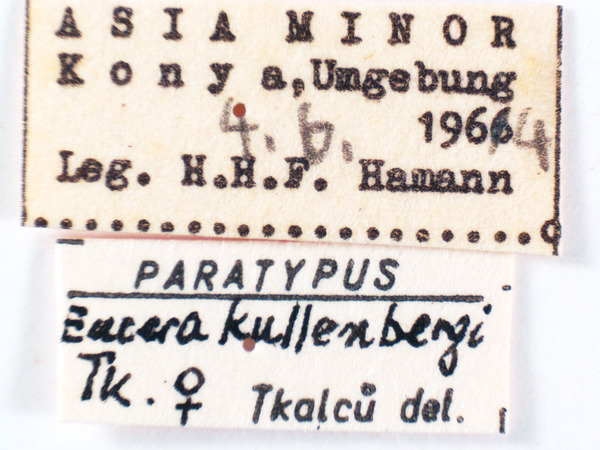 ASIA MINOR
Konya, Umgebung
4.6. 1964
Leg. H.H.F. Hamann
PARATYPUS
Eucera kullenbergi
Tk. ♀ Tkalců del.